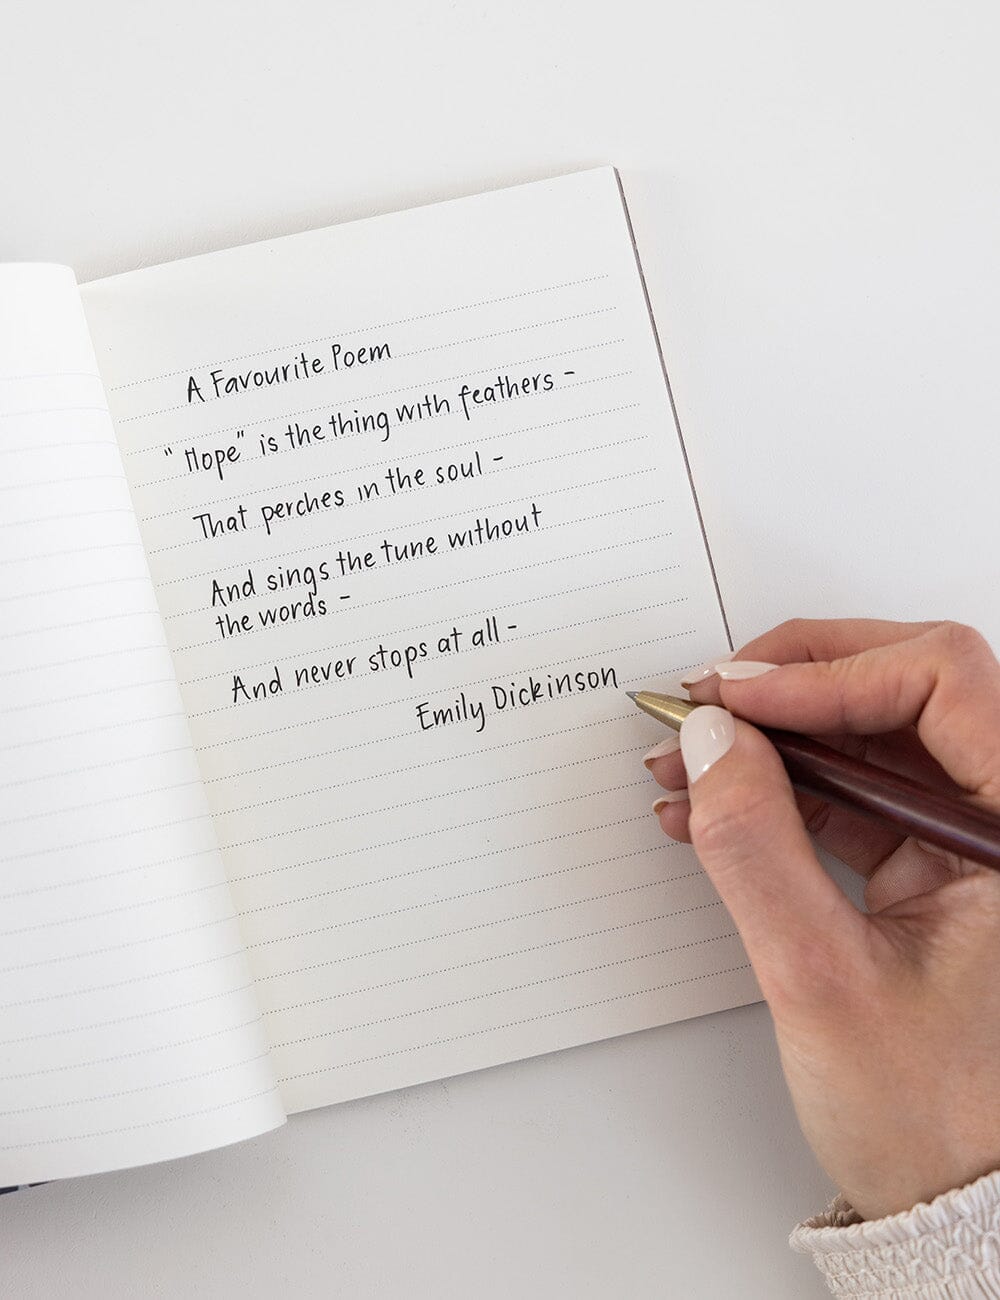 A Favourite Poem
"Hope" is the thing with feathers -
That perches in the soul -
And sings the tune without
the words -
And never stops at all -
Emily Dickinson